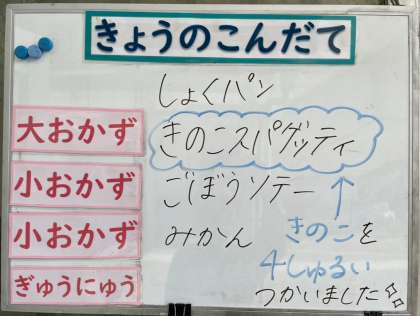 きょうのこんだて
しょくパン
大おかず きのこスパゲッティ
小おかず ごぼうソテー
小おかず みかん
ぎゅうにゅう
↑
きのこを
4しゅるい
つかいました